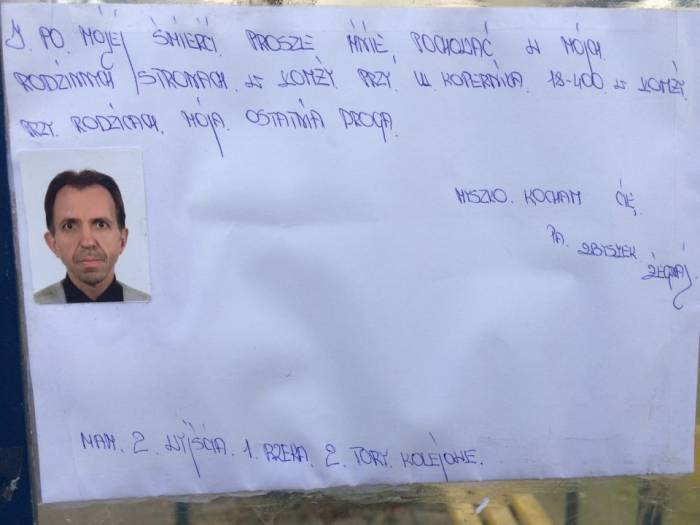 J. PO. MÓJEJ ŚMIERĆI. PROSZE MNIE POCHOWAĆ W MÓJCH
RODZINNYCH STRONACH. W ŁOMŻY. PRZY. UL KOPERNIKA. 18-400. W ŁOMŻY.
PRZY. RODZICACH. MÓJA. OSTATNIA DROGA.
MYSZKO. KOCHAM CIĘ.
PA. ZBYSZEK
ŻEGNAJ
MAM. 2. WYJŚCIA. 1. RZEKA. 2. TORY. KOLEJOWE.